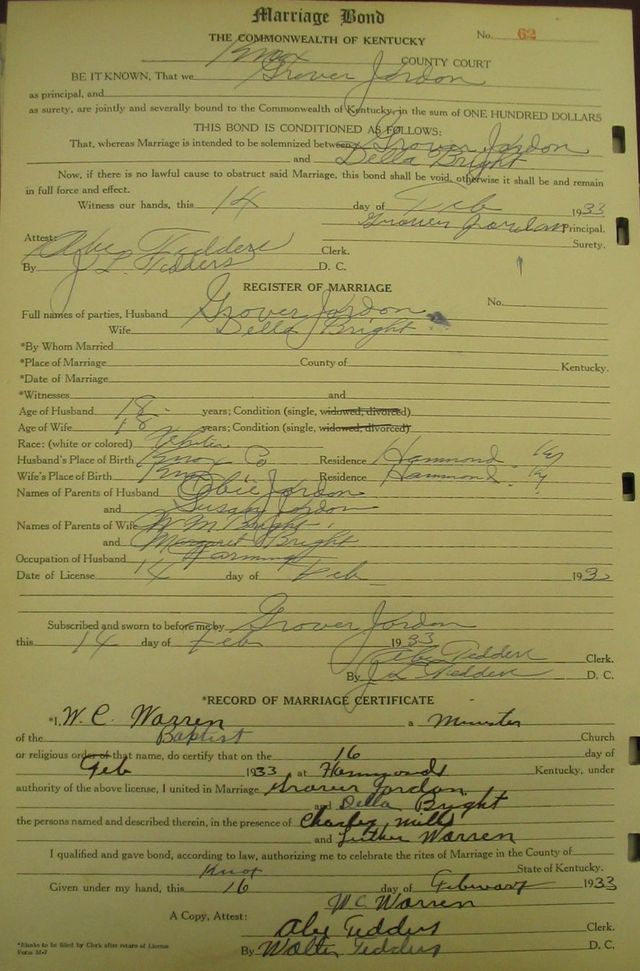 Marriage Bond
THE COMMONWEALTH OF KENTUCKY No. 62
Knox COUNTY COURT
BE IT KNOWN, That we Grover Jordon
as principal, and
as surety, are jointly and severally bound to the Commonwealth of Kentucky, in the sum of ONE HUNDRED DOLLARS
THIS BOND IS CONDITIONED AS FOLLOWS:
That, whereas Marriage is intended to be solemnized between Grover Jordon
and Della Bright
Now, if there is no lawful cause to obstruct said Marriage, this bond shall be void, otherwise it shall be and remain
in full force and effect.
Witness our hands, this 14 day of Feb 1933
Grover Jordan Principal.
Surety.
Attest:
Abe Tedders Clerk.
By J L Tedders D. C.
REGISTER OF MARRIAGE
No.
Full names of parties, Husband Grover Jordon
Wife Della Bright
*By Whom Married
*Place of Marriage County of Kentucky.
*Date of Marriage
*Witnesses and
Age of Husband 18 years; Condition (single, widowed, divorced)
Age of Wife 18 years; Condition (single, widowed, divorced)
Race: (white or colored) White
Husband's Place of Birth Knox Co Residence Hammond Ky
Wife's Place of Birth Knox Residence Hammond Ky
Names of Parents of Husband Obie Jordon
and Susan Jordon
Names of Parents of Wife W M Bright
and Margaret Bright
Occupation of Husband Farming
Date of License 14 day of Feb 193
Subscribed and sworn to before me by Grover Jordon
this 14 day of Feb 1933
Abe Tedders Clerk.
By J L Tedders D. C.
*RECORD OF MARRIAGE CERTIFICATE
*I, W. C. Warren a Minister
of the Baptist Church
or religious order of that name, do certify that on the 16 day of
Feb 1933 at Hammonds Kentucky, under
authority of the above license, I united in Marriage Grover Jordan
and Della Bright
the persons named and described therein, in the presence of Charley Mills
and Luther Warren
I qualified and gave bond, according to law, authorizing me to celebrate the rites of Marriage in the County of
Knox State of Kentucky.
Given under my hand, this 16 day of Feburary 1933
W C Warren
A Copy, Attest:
Abe Tedders Clerk.
By Walter Tedders D. C.
*Blanks to be filled by Clerk after return of License
Form M-7